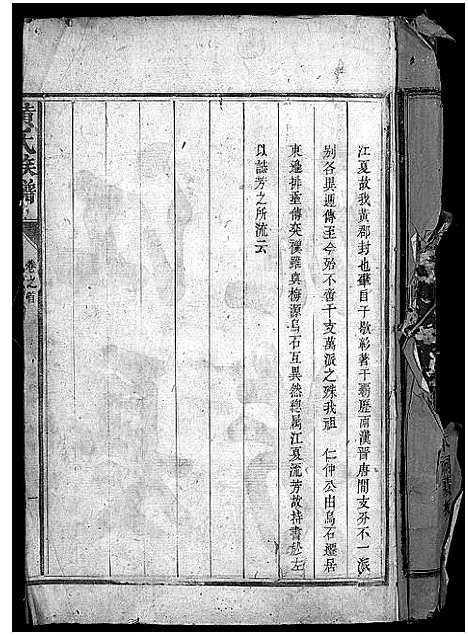 江夏故我黃郡封也肇自子敬彰著于霸歷兩漢晉唐間支分不一派
别各異遞傳至今殆不啻千支萬派之殊我祖　仁仲公由烏石遷居
東邊排董傳奕禩雖與梅源烏石互異然總屬江夏流芳故特書於左
以誌芳之所流云
黃氏族譜
卷之首
一